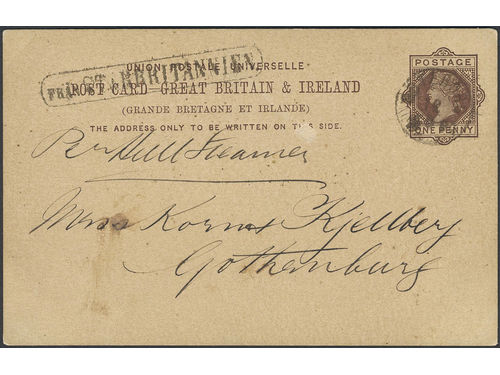 UNION POSTALE UNIVERSELLE
FRÅN ST. BRITANNIEN
POST CARD - GREAT BRITAIN & IRELAND
(GRANDE BRETAGNE ET IRLANDE)
THE ADDRESS ONLY TO BE WRITTEN ON THIS SIDE.
POSTAGE
ONE PENNY
Per Hull Steamer
Kjellberg
Gothenburg